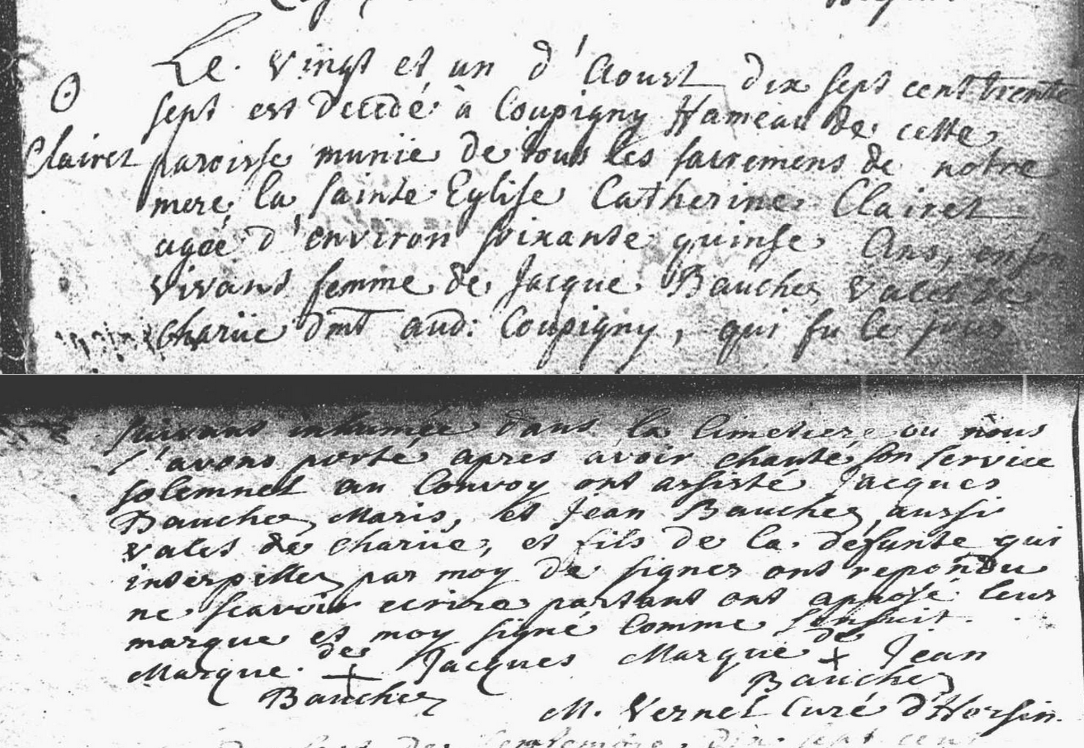 Le. vingt et un d'Aoust dix sept cent trente
sept est decedé à Coupigny Hameau de cette
Clairet
paroisse munie de tous les sacremens de notre
mere la sainte Eglise Catherine Clairet
agée d'environ soixante quinse Ans, en son
vivant femme de Jacque Bauchez Valet de
chariie dmt aud: Coupigny, qui fu le jour
suivant inhumée dans la Cimetiere ou nous
l'avons porté apres avoir chanté son service
solemnel au Convoy ont assisté Jacques
Bauchez Maris, et Jean Bauchez aussi
valet de chariie, et fils de la defunte qui
interpellez par moy de signer ont repondu
ne scavoir ecrire partant ont aposé leur
marque et moy signé comme s'ensuit.
Marque de Jacques Marque de Jean
Bauchez Bauchez
M. Vernel Curé d'Horsin.